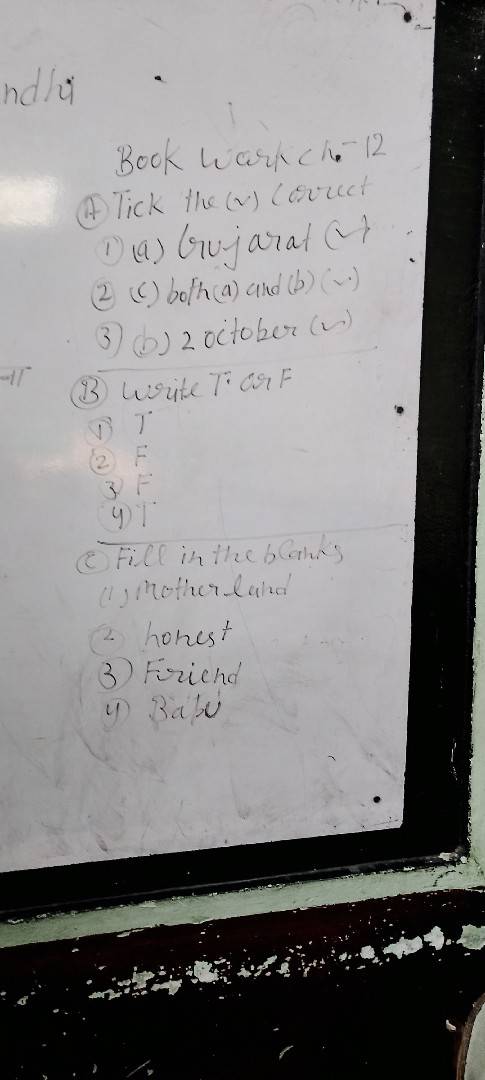 ndhi
Book Work ch-12
(A) Tick the (✓) Correct
(1) (a) Gujarat (✓)
(2) (c) both (a) and (b) (✓)
(3) (b) 2 october (✓)
(B) Write T or F
(1) T
(2) F
(3) F
(4) T
(C) Fill in the blanks
(1) Mother land
(2) honest
(3) Friend
(4) Babu